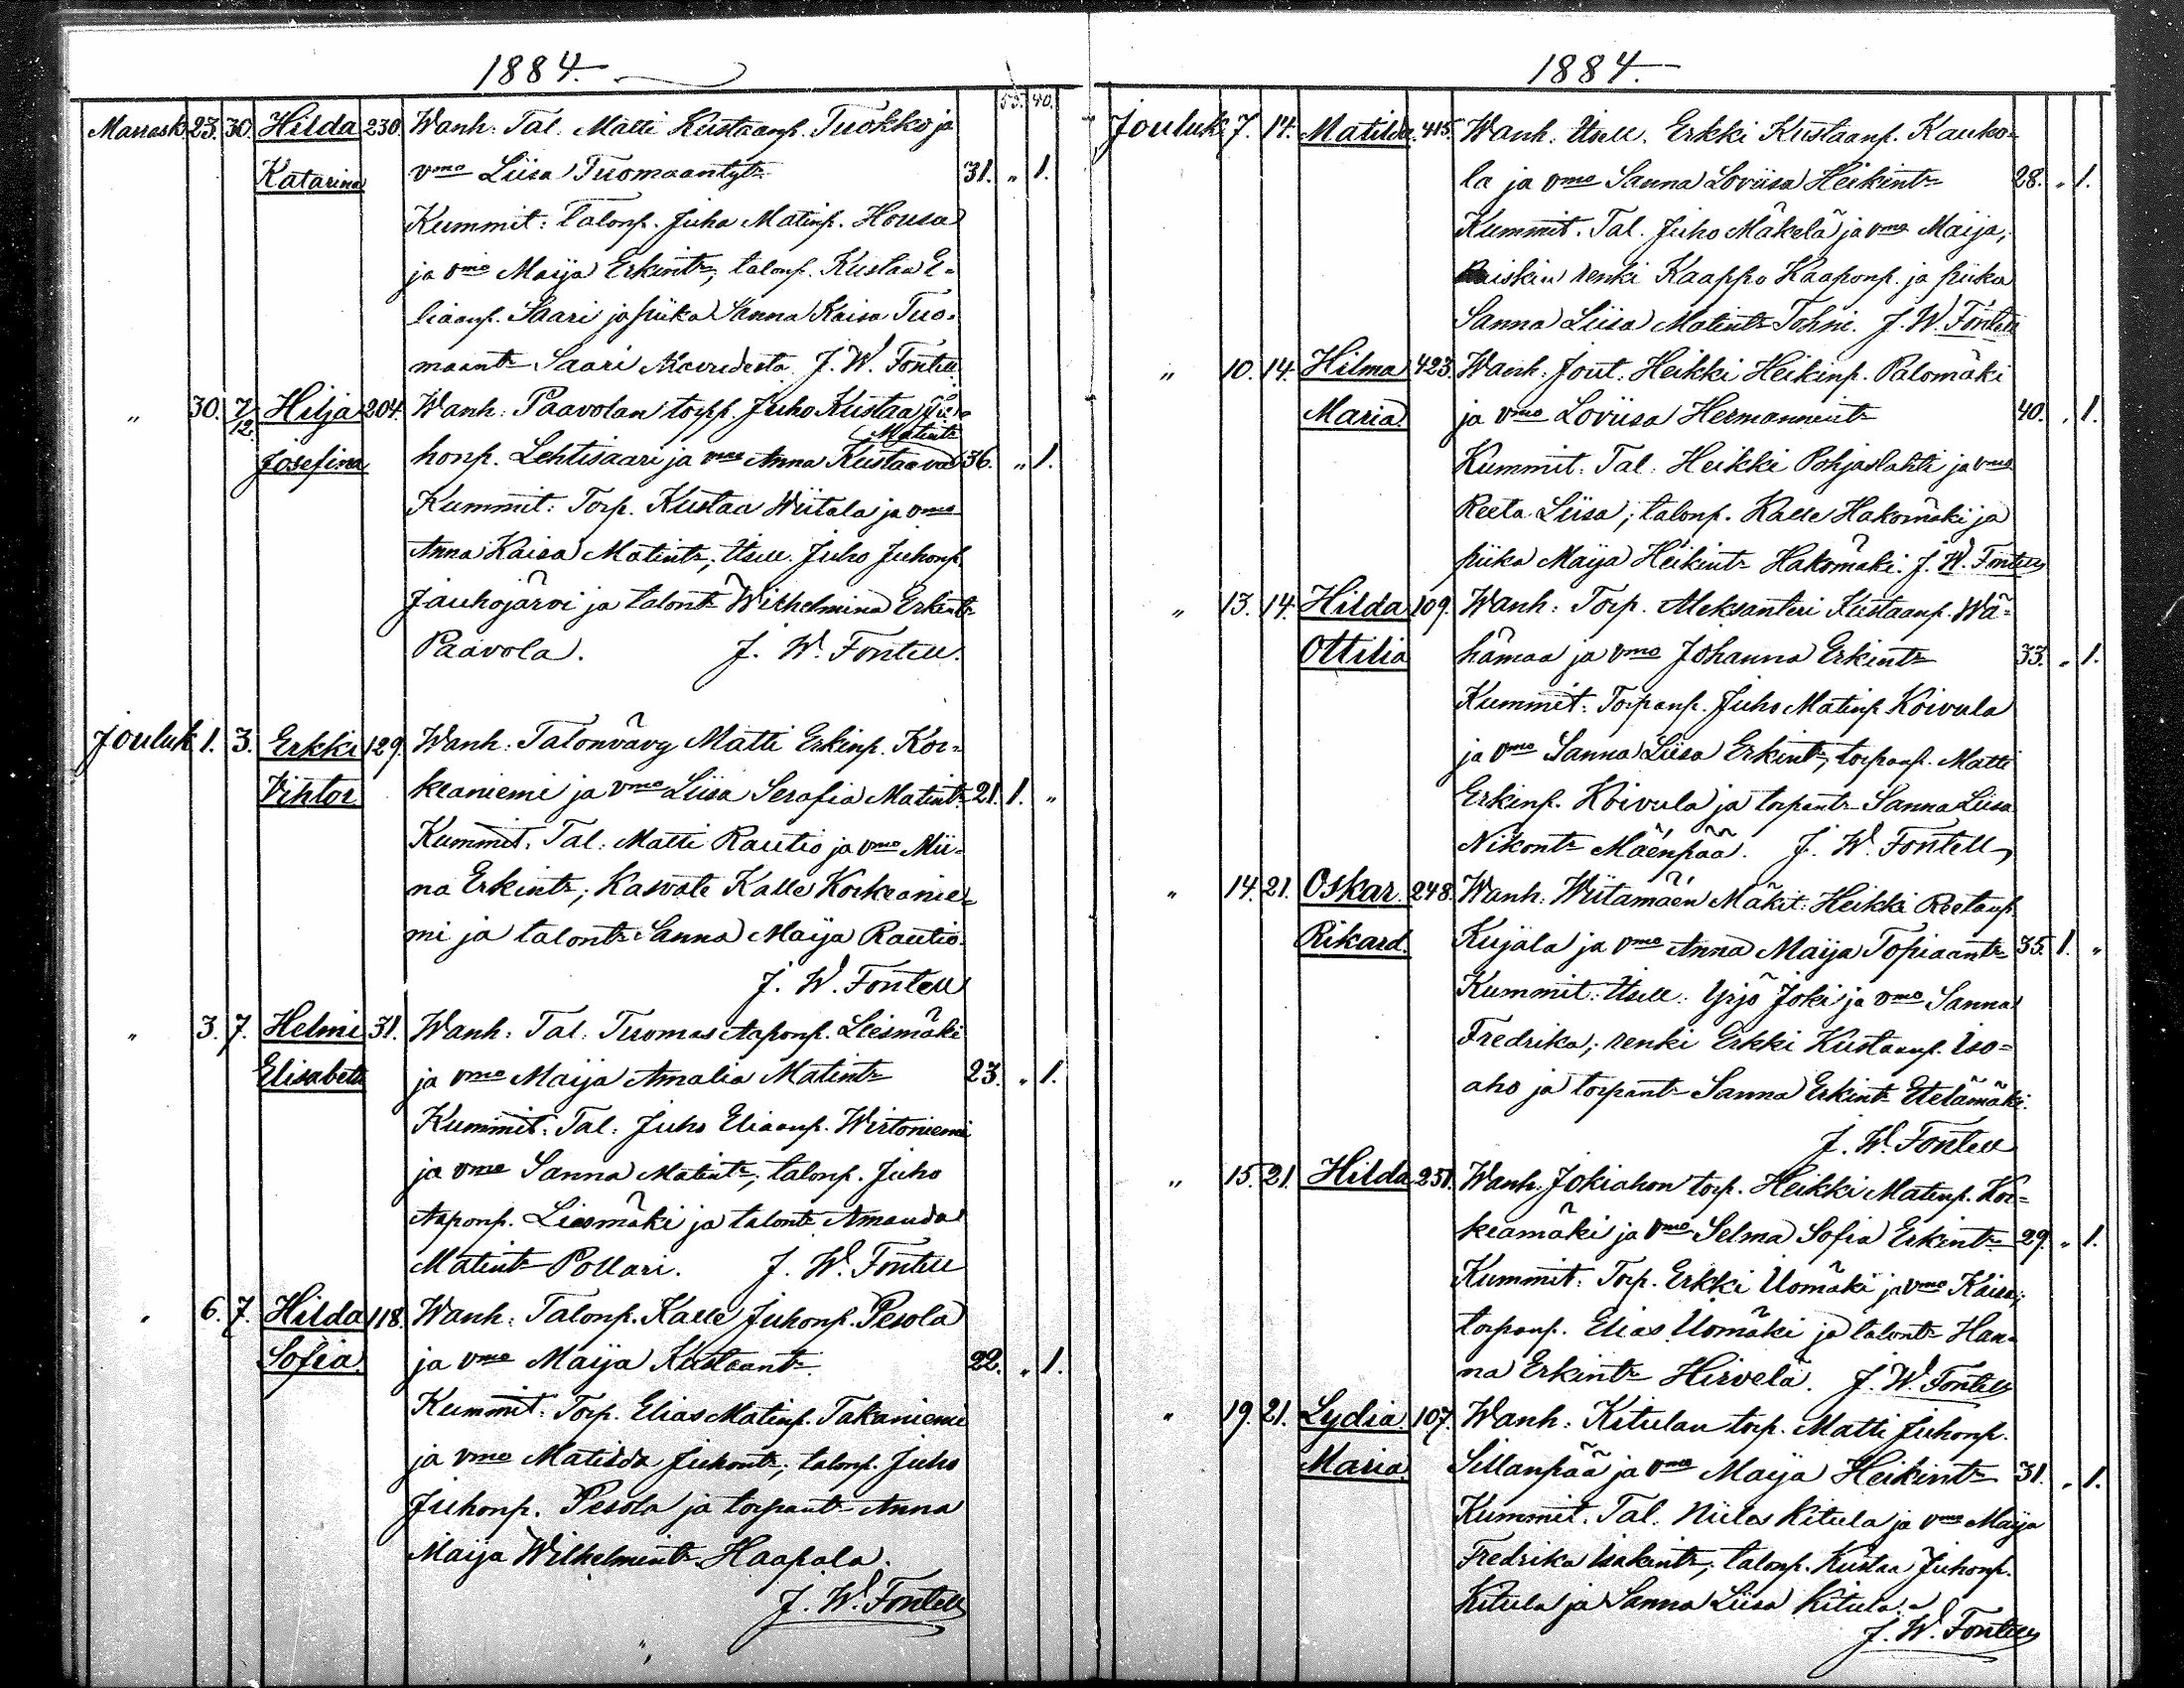 1884.
53. 40.
Marrask. 23. 30. Hilda 230. Wanh: Tal. Matti Kustaanp. Tuokko ja
Katarina vmo Liisa Tuomaantytr 31. " 1.
Kummit: Talonp. Juha Matinp. Housa
ja vmo Maija Erkintr, talonp. Kustaa E-
liaanp. Saari ja piika Sanna Kaisa Tuo-
maantr Saari J. W. Fontell.
" 30. 7/12. Hilja 204. Wanh: Paavolan torpp. Juho Kustaa Ju-
Matintr
Josefina honp. Lehtisaari ja vmo Anna Kustaava 36. " 1.
Kummit: Torp. Kustaa Wiitala ja vmo
Anna Kaisa Matintr; Itsell. Juho Juhonp.
Jauhojärvi ja talontr Wilhelmina Erkintr
Paavola. J. W. Fontell.
Jouluk. 1. 3. Erkki 129. Wanh: Talonvävy Matti Erkinp. Kor-
Vihtor keaniemi ja vmo Liisa Serafia Matintr 21. 1. "
Kummit. Tal: Matti Rautio ja vmo Mii-
na Erkintr; Kasvate Kalle Korkeanie-
mi ja talontr Sanna Maija Rautio.
J. W. Fontell
" 3. 7. Helmi 31. Wanh: Tal: Tuomas Aaponp. Liesmäki
Elisabet ja vmo Maija Amalia Matintr 23. " 1.
Kummit: Tal: Juho Eliaanp. Wirtoniemi
ja vmo Sanna Matintr; talonp. Juho
Aaponp. Liesmäki ja talontr Amanda
Matintr Pollari. J. W. Fontell
" 6. 7. Hilda 118. Wanh: Talonp. Kalle Juhonp. Pesola
Sofia. ja vmo Maija Kustaantr 22. " 1.
Kummit: Torp. Elias Matinp. Takaniemi
ja vmo Matilda Juhontr; talonp. Juho
Juhonp. Pesola ja torpantr Anna
Maija Wilhelmintr Haapala.
J. W. Fontell
1884.
Jouluk. 7. 14. Matilda. 415. Wanh. Itsell. Erkki Kustaanp. Kauko-
la ja vmo Sanna Loviisa Heikintr 28. " 1.
Kummit. Tal. Juho Mäkelä ja vmo Maija;
renki Kaappo Kaaponp. ja piika
Sanna Liisa Matintr Tohni. J. W. Fontell
" 10. 14. Hilma 423. Wanh: Jout: Heikki Heikinp. Palomäki
Maria. ja vmo Loviisa Hermannintr 40. " 1.
Kummit. Tal: Heikki Pohjaslahti ja vmo
Reeta Liisa; talonp. Kalle Hakomäki ja
piika Maija Heikintr Hakomäki. J. W. Fontell
" 13. 14. Hilda 109. Wanh: Torp. Aleksanteri Kustaanp. Wä-
Ottilia hämaa ja vmo Johanna Erkintr 33. " 1.
Kummit: Torpanp. Juho Matinp. Koivula
ja vmo Sanna Liisa Erkintr; torpanp. Matti
Erkinp. Koivula ja torpantr Sanna Liisa
Nikontr Mäenpää. J. W. Fontell
" 14. 21. Oskar. 248. Wanh: Wiitamäen Mäkit: Heikki Reetanp.
Rikard. Kujala ja vmo Anna Maija Topiaantr 35. 1. "
Kummit: Itsell: Yrjö Joki ja vmo Sanna
Fredrika; renki Erkki Kustaanp. Iso-
aho ja torpantr Sanna Erkintr Etelämäki.
J. W. Fontell
" 15. 21. Hilda 251. Wanh. Jokiahon torp. Heikki Matinp. Kor-
keamäki ja vmo Selma Sofia Erkintr 29. " 1.
Kummit: Torp. Erkki Uomäki ja vmo Kaisa;
torpanp. Elias Uomäki ja talontr Han-
na Erkintr Hirvelä. J. W. Fontell
" 19. 21. Lydia. 107. Wanh: Kitulan torp. Matti Juhonp.
Maria. Sillanpää ja vmo Maija Heikintr 31. " 1.
Kummit. Tal. Niilos Kitula ja vmo Maija
Fredrika Isakintr; talonp. Kustaa Juhonp.
Kitula ja Sanna Liisa Kitula.
J. W. Fontell